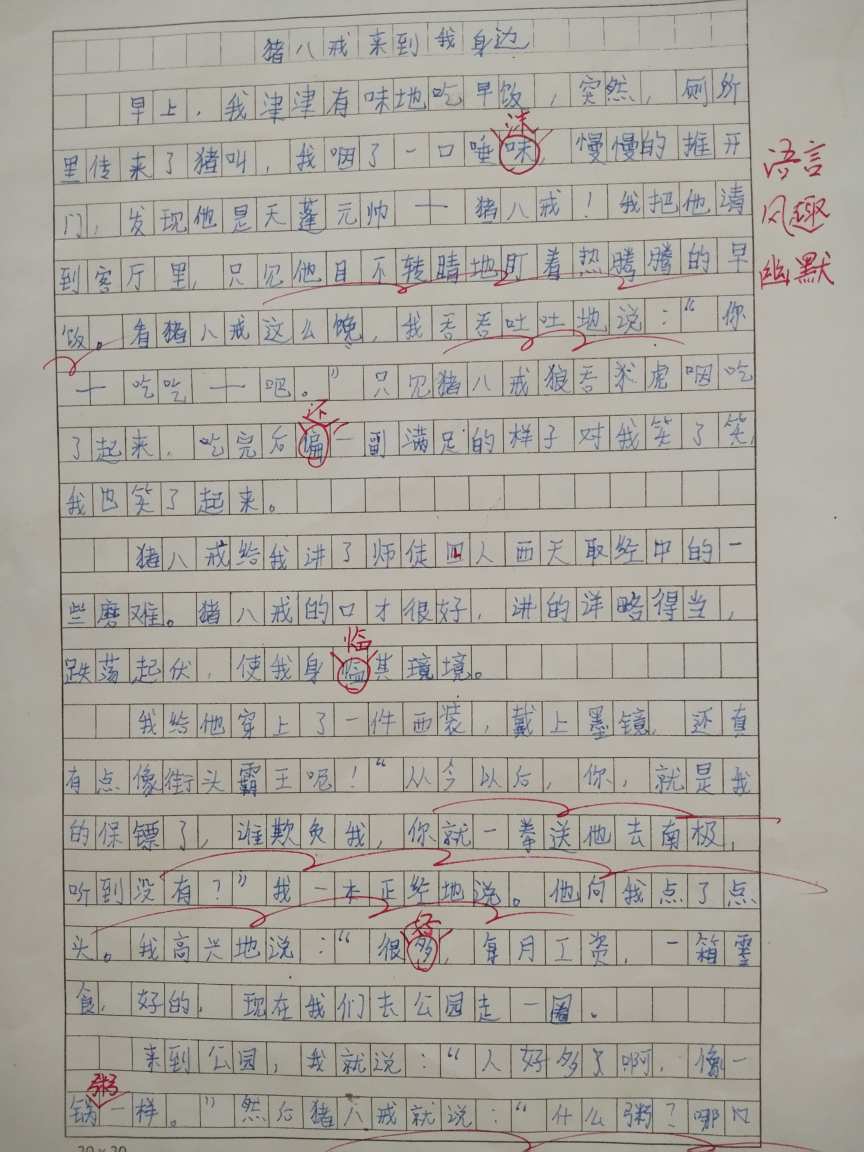 猪八戒来到我身边
早上，我津津有味地吃早饭，突然，厕所
沫
里传来了猪叫，我咽了一口唾味，慢慢的推开
语言
门，发现他是天蓬元帅——猪八戒！我把他请
风趣
到客厅里，只见他目不转睛地盯着热腾腾的早
幽默
饭。看猪八戒这么馋，我吞吞吐吐地说：“你
——吃吃——吧。”只见猪八戒狼吞虎咽吃
还
了起来，吃完后偏一副满足的样子对我笑了笑，
我也笑了起来。
猪八戒给我讲了师徒四人西天取经中的一
些磨难。猪八戒的口才很好，讲的详略得当，
临
跌荡起伏，使我身临其境境。
我给他穿上了一件西装，戴上墨镜，还真
有点像街头霸王呢！“从今以后，你，就是我
的保镖了，谁欺负我，你就一拳送他去南极，
听到没有？”我一本正经地说。他向我点了点
好
头。我高兴地说：“很多，每月工资，一箱零
食，好的，现在我们去公园走一圈。
来到公园，我就说：“人好多了啊，像一
粥
锅一样。”然后猪八戒就说：“什么粥？哪儿
20×20